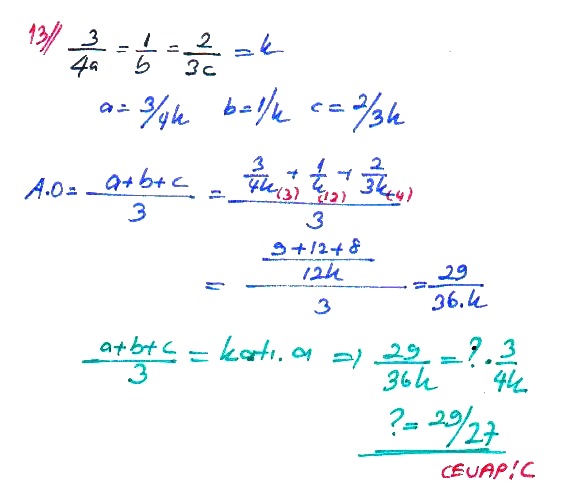 13// 3/4a = 1/b = 2/3c = k
a = 3/4k b = 1/k c = 2/3k
A.O = (a+b+c)/3 = (3/4k (3) + 1/k (12) + 2/3k (4))/3
= ((9+12+8)/12k)/3 = 29/36.k
(a+b+c)/3 = katı.a => 29/36k = ? . 3/4k
? = 29/27
CEVAP: C